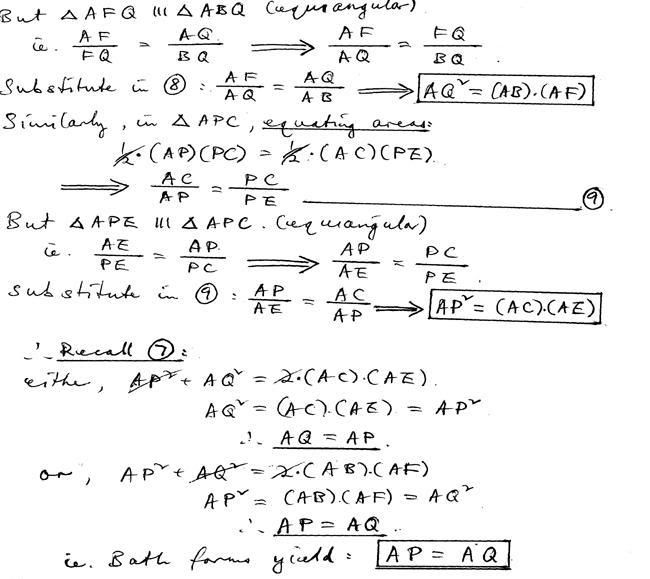 But △AFQ ||| △ABQ (equiangular)
ie. AF/FQ = AQ/BQ ⟹ AF/AQ = FQ/BQ.
Substitute in ⑧ : AF/AQ = AQ/AB ⟹ AQ² = (AB).(AF)
Similarly, in △APC, equating areas:
½.(AP)(PC) = ½.(AC)(PE).
⟹ AC/AP = PC/PE ⑨
But △APE ||| △APC. (equiangular)
ie. AE/PE = AP/PC ⟹ AP/AE = PC/PE.
Substitute in ⑨ : AP/AE = AC/AP ⟹ AP² = (AC).(AE)
∴ Recall ⑦:
either, AP² + AQ² = 2.(AC).(AE).
AQ² = (AC).(AE) = AP²
∴ AQ = AP.
or, AP² + AQ² = 2.(AB).(AF)
AP² = (AB).(AF) = AQ²
∴ AP = AQ.
ie. Both forms yield: AP = AQ